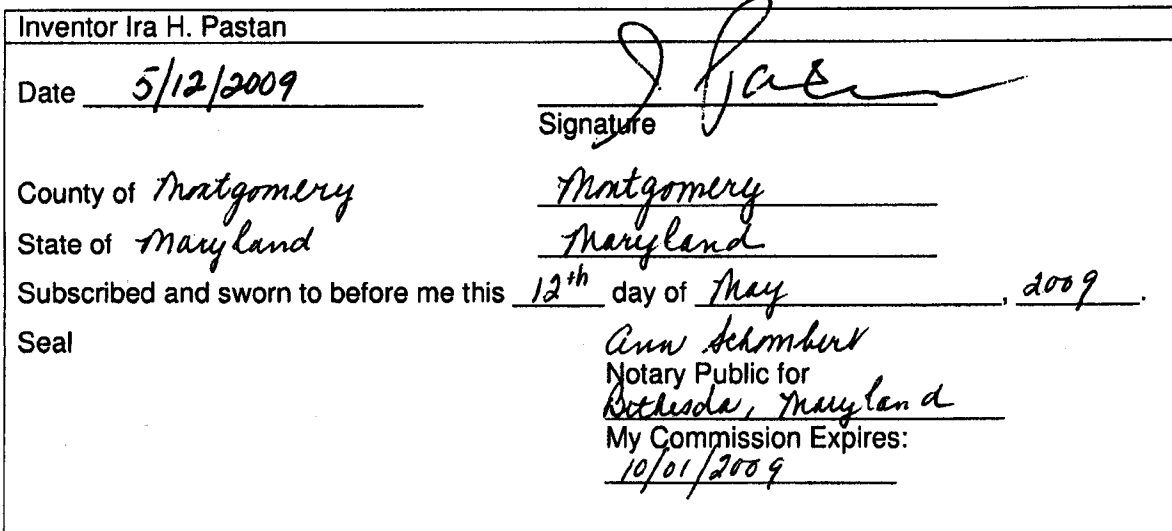 Inventor Ira H. Pastan
Date 5/12/2009
I Pastan
Signature
County of Montgomery Montgomery
State of Maryland Maryland
Subscribed and sworn to before me this 12th day of May, 2009.
Seal
Ann Schombert
Notary Public for
Bethesda, Maryland
My Commission Expires:
10/01/2009